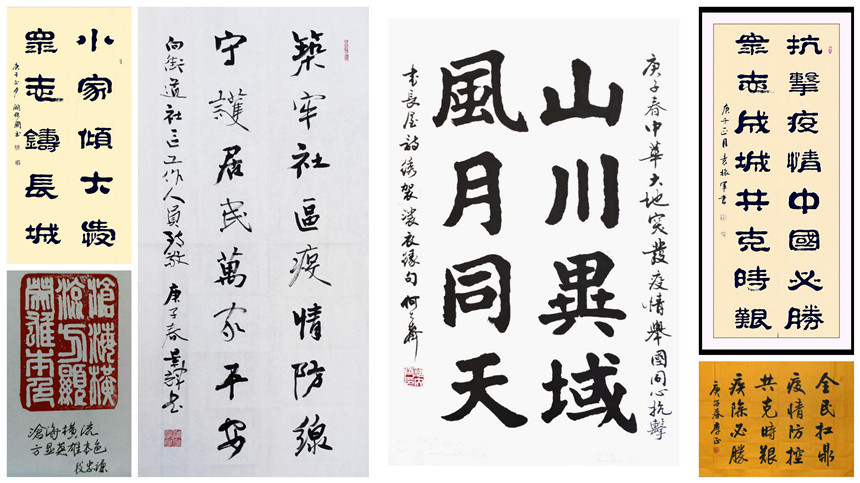 小家傾大愛
衆志鑄長城
庚子正月
築牢社區疫情防線
守護居民萬家平安
向街道社区工作人員致敬 庚子春
庚子春中華大地突發疫情舉國同心抗擊
山川異域
風月同天
書長屋詩綉袈裟衣緣句
抗擊疫情中國必勝
衆志成城共克時艱
庚子正月
滄海橫
流方顯
英雄本色
滄海橫流
方显英雄本色
全民扛鼎
疫情防控
共克時艱
疾除必勝
庚子春